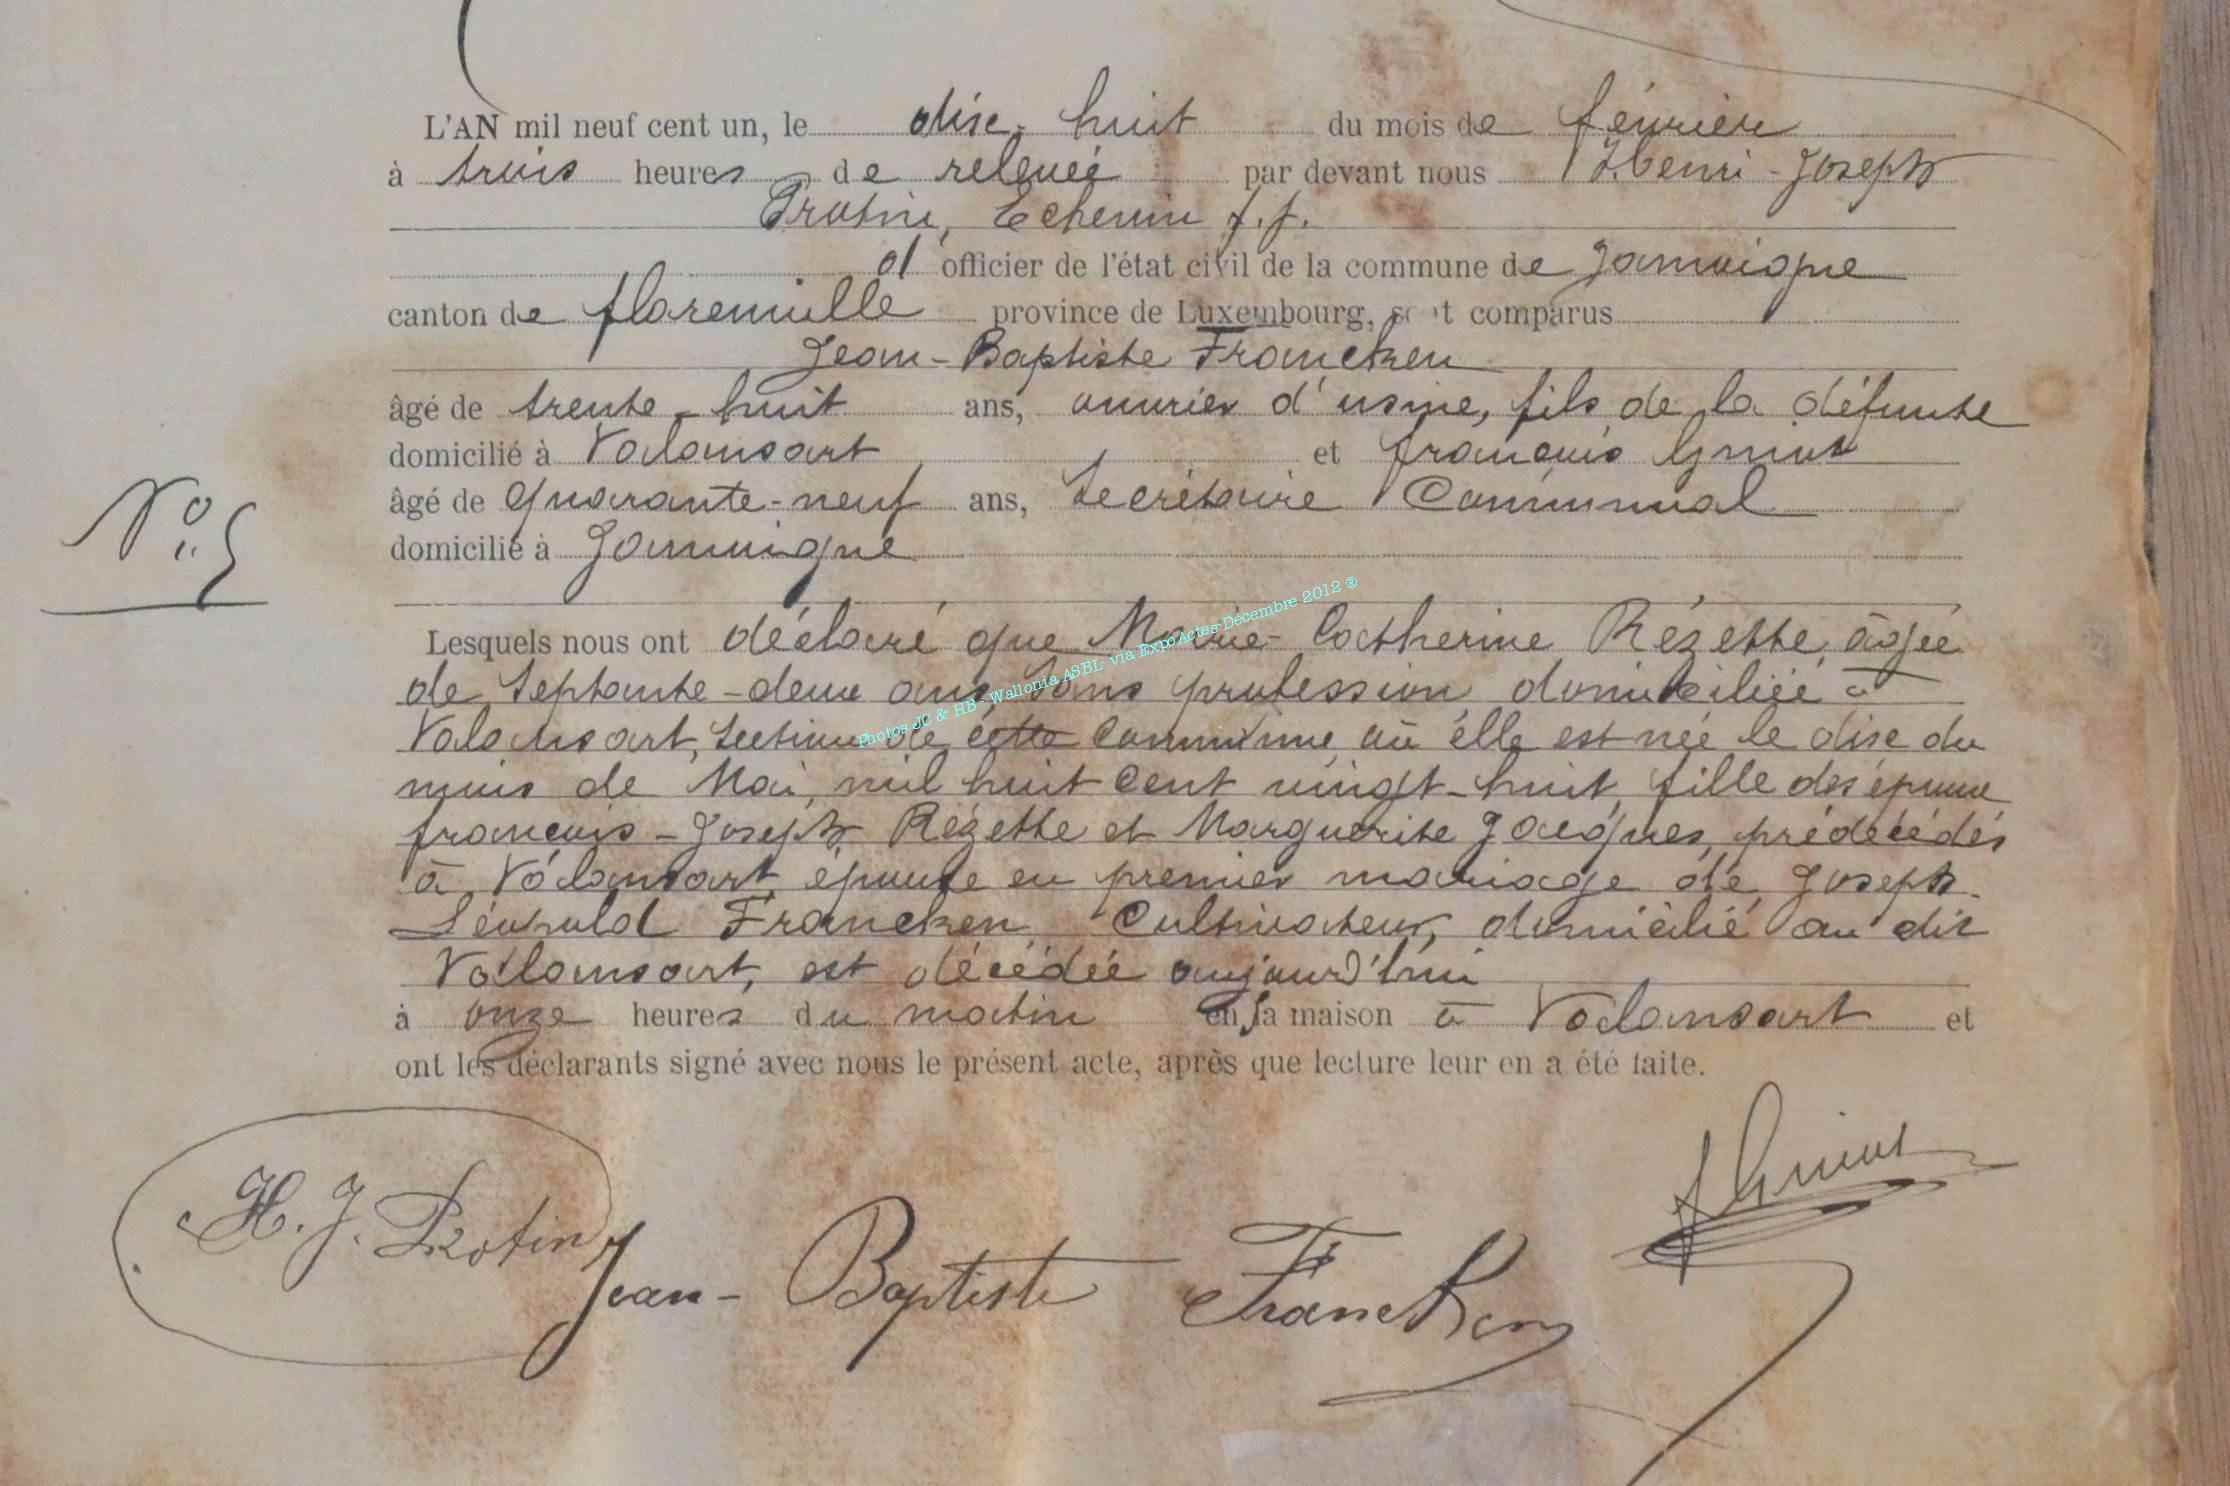 L'AN mil neuf cent un, le dix-huit du mois de février
à trois heures de relevée par devant nous Henri-Joseph
Protin, Echevin f.f.
d'officier de l'état civil de la commune de Jamoigne
canton de florenville province de Luxembourg, sont comparus
Jean-Baptiste Francken
âgé de trente-huit ans, ouvrier d'usine, fils de la défunte
domicilié à Valansart et françois
âgé de quarante-neuf ans, Secrétaire Communal
domicilié à Jamoigne
N° 5
Lesquels nous ont déclaré que Marie-Catherine Rézette, âgée
de Septante-deux ans, Sans profession, domiciliée à
Valansart, Section de cette Commune, où elle est née le dix du
mois de Mai, mil huit Cent vingt-huit, fille des époux
françois-Joseph Rézette et Marguerite Jacques, prédécédés
à Valansart, épouse en premier mariage de Joseph-
Léopold Francken, Cultivateur, domicilié au dit
Valansart, est décédée aujourd'hui
à onze heures du matin en sa maison à Valansart et
ont les déclarants signé avec nous le présent acte, après que lecture leur en a été faite.
H. J. Protin
Jean-Baptiste Francken
Photos JC & HB - Wallonia ASBL via ExpoActes-Décembre 2012 ®